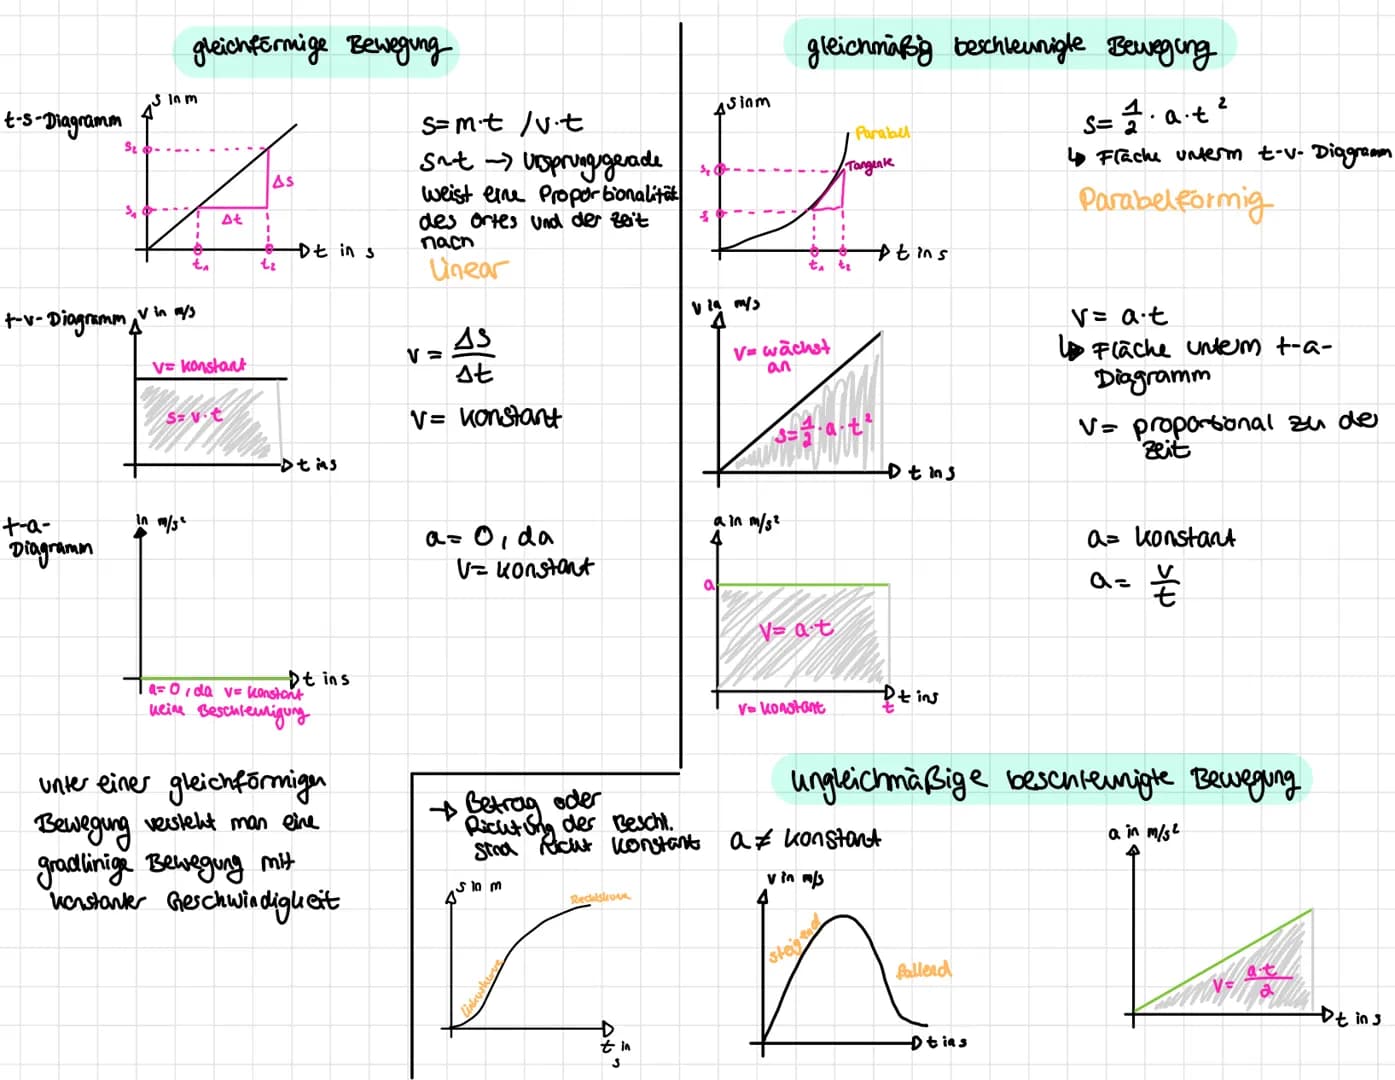 gleichförmige Bewegung
t-s-Diagramm
s in m
s₂
s₁
Δs
Δt
t₁
t₂
t in s
s=m·t /v·t
s~t → Ursprungsgerade
weist eine Proportionalität
des Ortes und der Zeit
nach
Linear
t-v-Diagramm
v in m/s
v= konstant
s=v·t
t in s
v = Δs/Δt
v= konstant
t-a-
Diagramm
in m/s²
t in s
a=0, da v= konstant
keine Beschleunigung
a= 0, da
v= konstant
unter einer gleichförmigen
Bewegung versteht man eine
gradlinige Bewegung mit
konstanter Geschwindigkeit
gleichmäßig beschleunigte Bewegung
s in m
Parabel
Tangente
s₂
s₁
t₁
t₂
t in s
s= 1/2 · a·t²
↳ Fläche unterm t-v- Diagramm
Parabelförmig
v in m/s
v= wächst
an
s=1/2·a·t²
t in s
v= a·t
↳ Fläche unterm t-a-
Diagramm
v= proportional zu der
Zeit
a in m/s²
a
v= a·t
t in s
v= konstant
t
a= konstant
a= v/t
ungleichmäßige beschleunigte Bewegung
→ Betrag oder
Richtung der Beschl.
sind nicht konstant
a ≠ konstant
s in m
Linkskurve
Rechtskurve
t in
s
v in m/s
steigend
fallend
t in s
a in m/s²
v= a·t/2
t in s